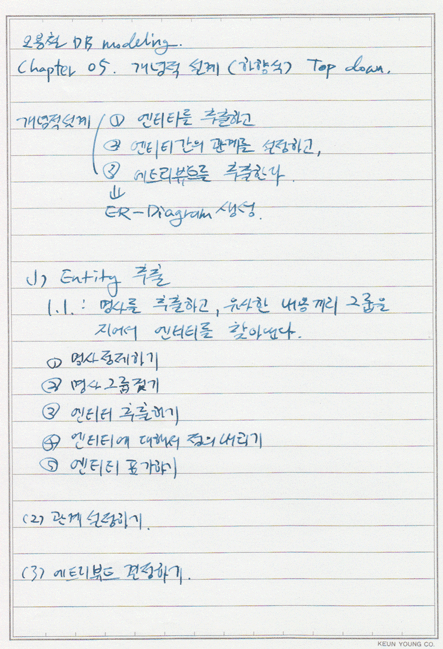 오용철 DB modeling.
Chapter 05. 개념적 설계 (하향식) Top down.
개념적설계 ① 엔티티를 추출하고
② 엔티티간의 관계를 설정하고,
③ 에트리뷰트를 추출한다.
⇓
ER-Diagram 생성.
(1) Entity 추출
1.1. : 명사를 추출하고, 유사한 내용끼리 그룹을
지어서 엔티티를 찾아낸다.
① 명사 통제하기
② 명사 그룹짓기
③ 엔티티 추출하기
④ 엔티티에 대해서 정의 내리기
⑤ 엔티티 표기하기
(2) 관계 설정하기.
(3) 에트리뷰트 결정하기.
KEUN YOUNG CO.